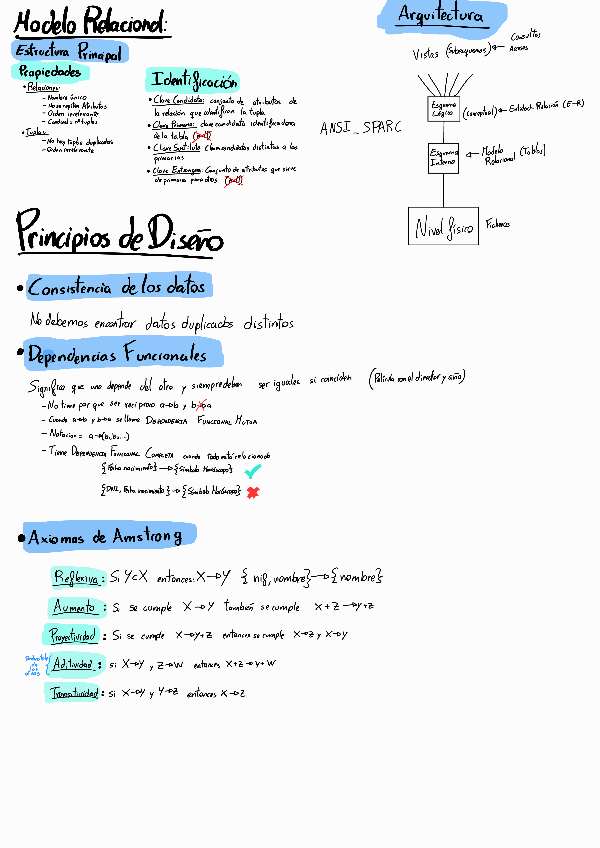 Modelo Relacional:
Estructura Principal
Propiedades
• Relaciones:
- Nombre único
- No se repiten Atributos
- Orden irrelevante
- Cardinales múltiples
• Tuplas:
- No hay tuplas duplicadas
- Orden irrelevante
Identificación
• Clave Candidata: conjunto de atributos de
la relación que identifican la tupla
• Clave Primaria: clave candidata identificadora
de la tabla (null)
• Clave Sustituta: claves candidatas distintas a las
primarias
• Clave Extranjera: Conjunto de atributos que sirve
de primaria para otros (null)
Arquitectura
Vistas (Subesquemas) ← Consultas
Accesos
ANSI_SPARC
Esquema
Lógico
(Conceptual) ← Entidad-Relación (E-R)
Esquema
Interno
← Modelo
Relacional (Tablas)
Nivel físico
Ficheros
Principios de Diseño
• Consistencia de los datos
No debemos encontrar datos duplicados distintos
• Dependencias Funcionales
Significa que uno depende del otro y siempre deben ser iguales si coinciden (Película con el director y año)
- No tiene por que ser reciproco a→b y b→a
- Cuando a→b y b→a se llama DEPENDENCIA FUNCIONAL MUTUA
- Notacion = a→{b,b₂...}
- Tiene DEPENDENCIA FUNCIONAL COMPLETA cuando todo está relacionado
{Fecha nacimiento} → {Símbolo Horóscopo} ✓
{DNI, Fecha nacimiento} → {Símbolo Horóscopo} ✗
• Axiomas de Amstrong
Reflexiva: Si Y⊂X entonces: X→Y {nif, nombre}→{nombre}
Aumento: Si se cumple X→Y también se cumple X+Z→Y+Z
Proyectividad: Si se cumple X→Y+Z entonces se cumple X→Z y X→Y
Aditividad: si X→Y y Z→W entonces X+Z→Y+W
Transitividad: si X→Y y Y→Z entonces X→Z